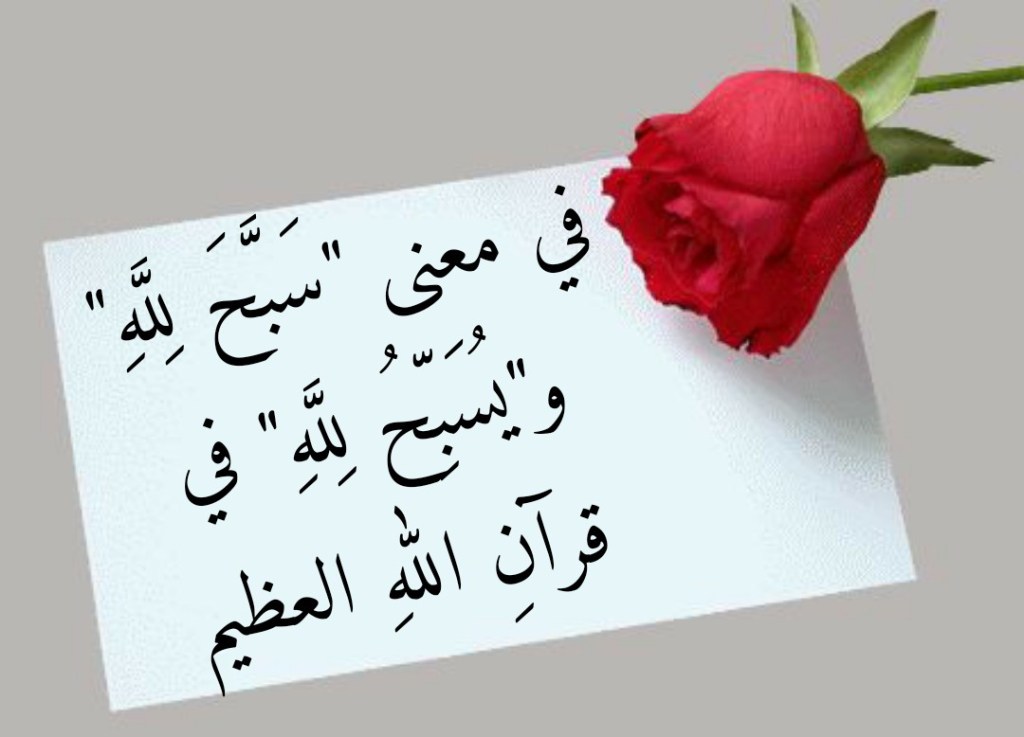 في معنى "سَبَّحَ لِلَّهِ"
و"يُسَبِّحُ لِلَّهِ" في
قرآنِ اللهِ العظيم